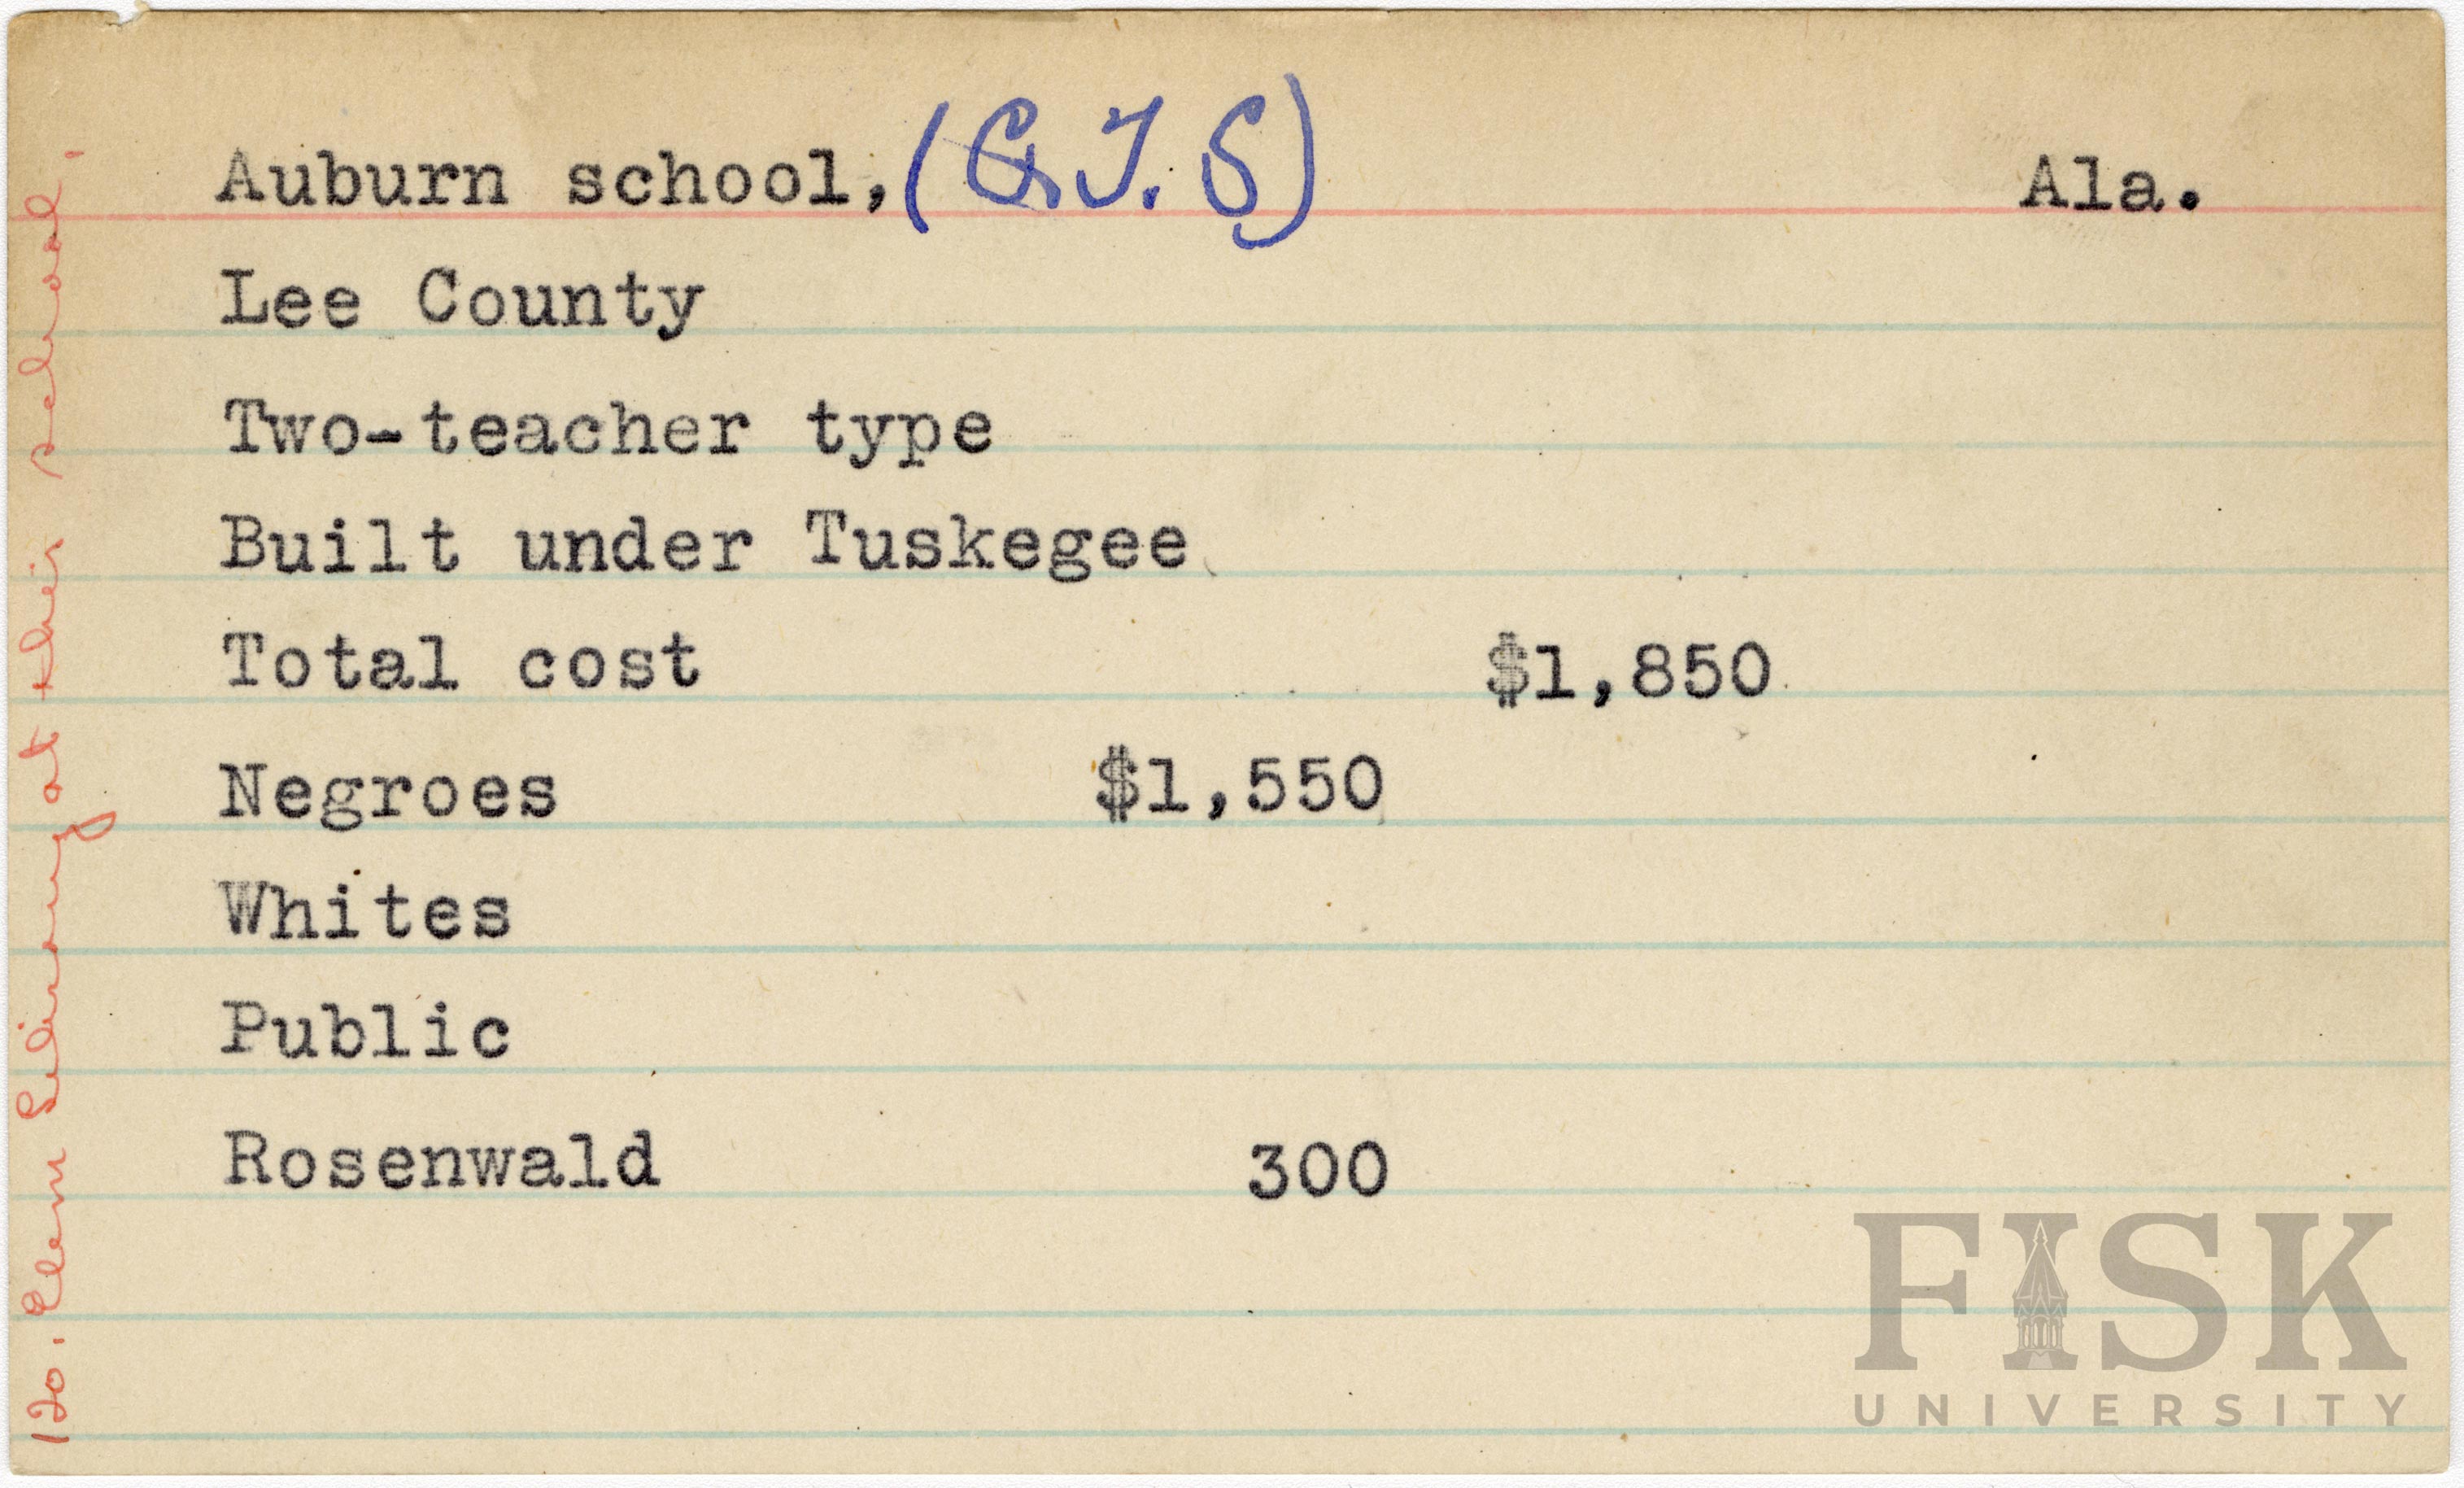 Auburn school, (G.T.S) Ala.
Lee County
Two-teacher type
Built under Tuskegee
Total cost $1,850
Negroes $1,550
Whites
Public
Rosenwald 300
120. Elem Library at their school.
FISK
UNIVERSITY